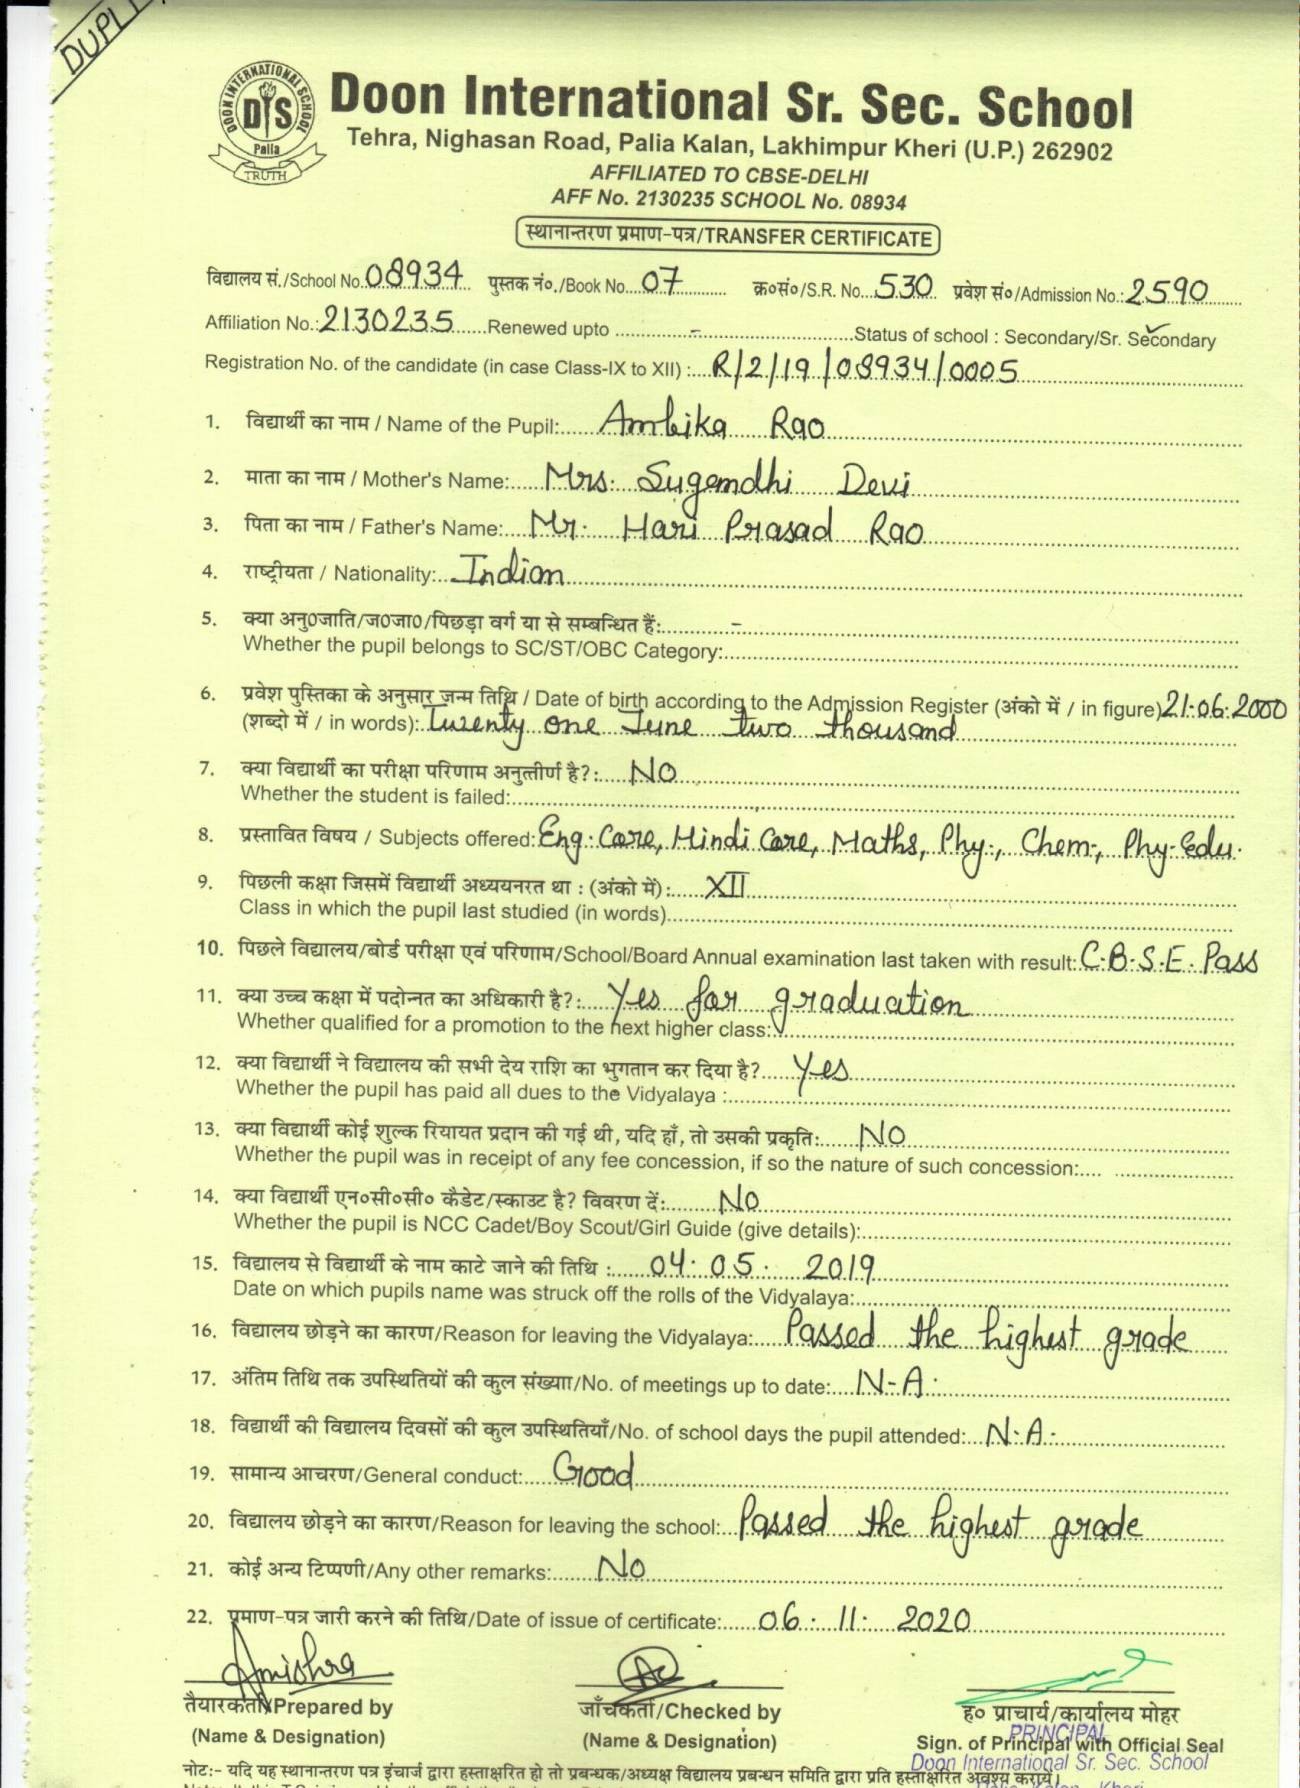 DUPLI
DOON INTERNATIONAL SCHOOL
DIS
Palia
TRUTH
Doon International Sr. Sec. School
Tehra, Nighasan Road, Palia Kalan, Lakhimpur Kheri (U.P.) 262902
AFFILIATED TO CBSE-DELHI
AFF No. 2130235 SCHOOL No. 08934
स्थानान्तरण प्रमाण-पत्र/TRANSFER CERTIFICATE
विद्यालय सं./School No. 08934 पुस्तक नं०./Book No. 07 क्र०सं०/S.R. No. 530 प्रवेश सं०/Admission No.: 2590
Affiliation No.: 2130235 Renewed upto - Status of school : Secondary/Sr. Secondary
Registration No. of the candidate (in case Class-IX to XII) : R/2/19/08934/0005
1. विद्यार्थी का नाम / Name of the Pupil: Ambika Rao
2. माता का नाम / Mother's Name: Mrs. Sugandhi Devi
3. पिता का नाम / Father's Name: Mr. Hari Prasad Rao
4. राष्ट्रीयता / Nationality: Indian
5. क्या अनु०जाति/ज०जा०/पिछड़ा वर्ग या से सम्बन्धित हैं: -
Whether the pupil belongs to SC/ST/OBC Category:
6. प्रवेश पुस्तिका के अनुसार जन्म तिथि / Date of birth according to the Admission Register (अंको में / in figure) 21.06.2000
(शब्दो में / in words): Twenty one June two thousand
7. क्या विद्यार्थी का परीक्षा परिणाम अनुत्तीर्ण है?: NO
Whether the student is failed:
8. प्रस्तावित विषय / Subjects offered: Eng. Core, Hindi Core, Maths, Phy., Chem., Phy. Edu.
9. पिछली कक्षा जिसमें विद्यार्थी अध्ययनरत था : (अंको में): XII
Class in which the pupil last studied (in words)
10. पिछले विद्यालय/बोर्ड परीक्षा एवं परिणाम/School/Board Annual examination last taken with result: C.B.S.E. Pass
11. क्या उच्च कक्षा में पदोन्नत का अधिकारी है?: Yes for graduation
Whether qualified for a promotion to the next higher class:
12. क्या विद्यार्थी ने विद्यालय की सभी देय राशि का भुगतान कर दिया है? Yes
Whether the pupil has paid all dues to the Vidyalaya :
13. क्या विद्यार्थी कोई शुल्क रियायत प्रदान की गई थी, यदि हाँ, तो उसकी प्रकृति: NO
Whether the pupil was in receipt of any fee concession, if so the nature of such concession:
14. क्या विद्यार्थी एन०सी०सी० कैडेट/स्काउट है? विवरण दें: No
Whether the pupil is NCC Cadet/Boy Scout/Girl Guide (give details):
15. विद्यालय से विद्यार्थी के नाम काटे जाने की तिथि : 04.05. 2019
Date on which pupils name was struck off the rolls of the Vidyalaya:
16. विद्यालय छोड़ने का कारण/Reason for leaving the Vidyalaya: Passed the highest grade
17. अंतिम तिथि तक उपस्थितियों की कुल संख्याा/No. of meetings up to date: N.A.
18. विद्यार्थी की विद्यालय दिवसों की कुल उपस्थितियाँ/No. of school days the pupil attended: N.A.
19. सामान्य आचरण/General conduct: Good
20. विद्यालय छोड़ने का कारण/Reason for leaving the school: Passed the highest grade
21. कोई अन्य टिप्पणी/Any other remarks: No
22. प्रमाण-पत्र जारी करने की तिथि/Date of issue of certificate: 06. 11. 2020
तैयारकर्ता/Prepared by जाँचकर्ता/Checked by ह० प्राचार्य/कार्यालय मोहर
PRINCIPAL
(Name & Designation) (Name & Designation) Sign. of Principal with Official Seal
Doon International Sr. Sec. School
नोट:- यदि यह स्थानान्तरण पत्र इंचार्ज द्वारा हस्ताक्षरित हो तो प्रबन्धक/अध्यक्ष विद्यालय प्रबन्धन समिति द्वारा प्रति हस्ताक्षरित अवश्य करायें।